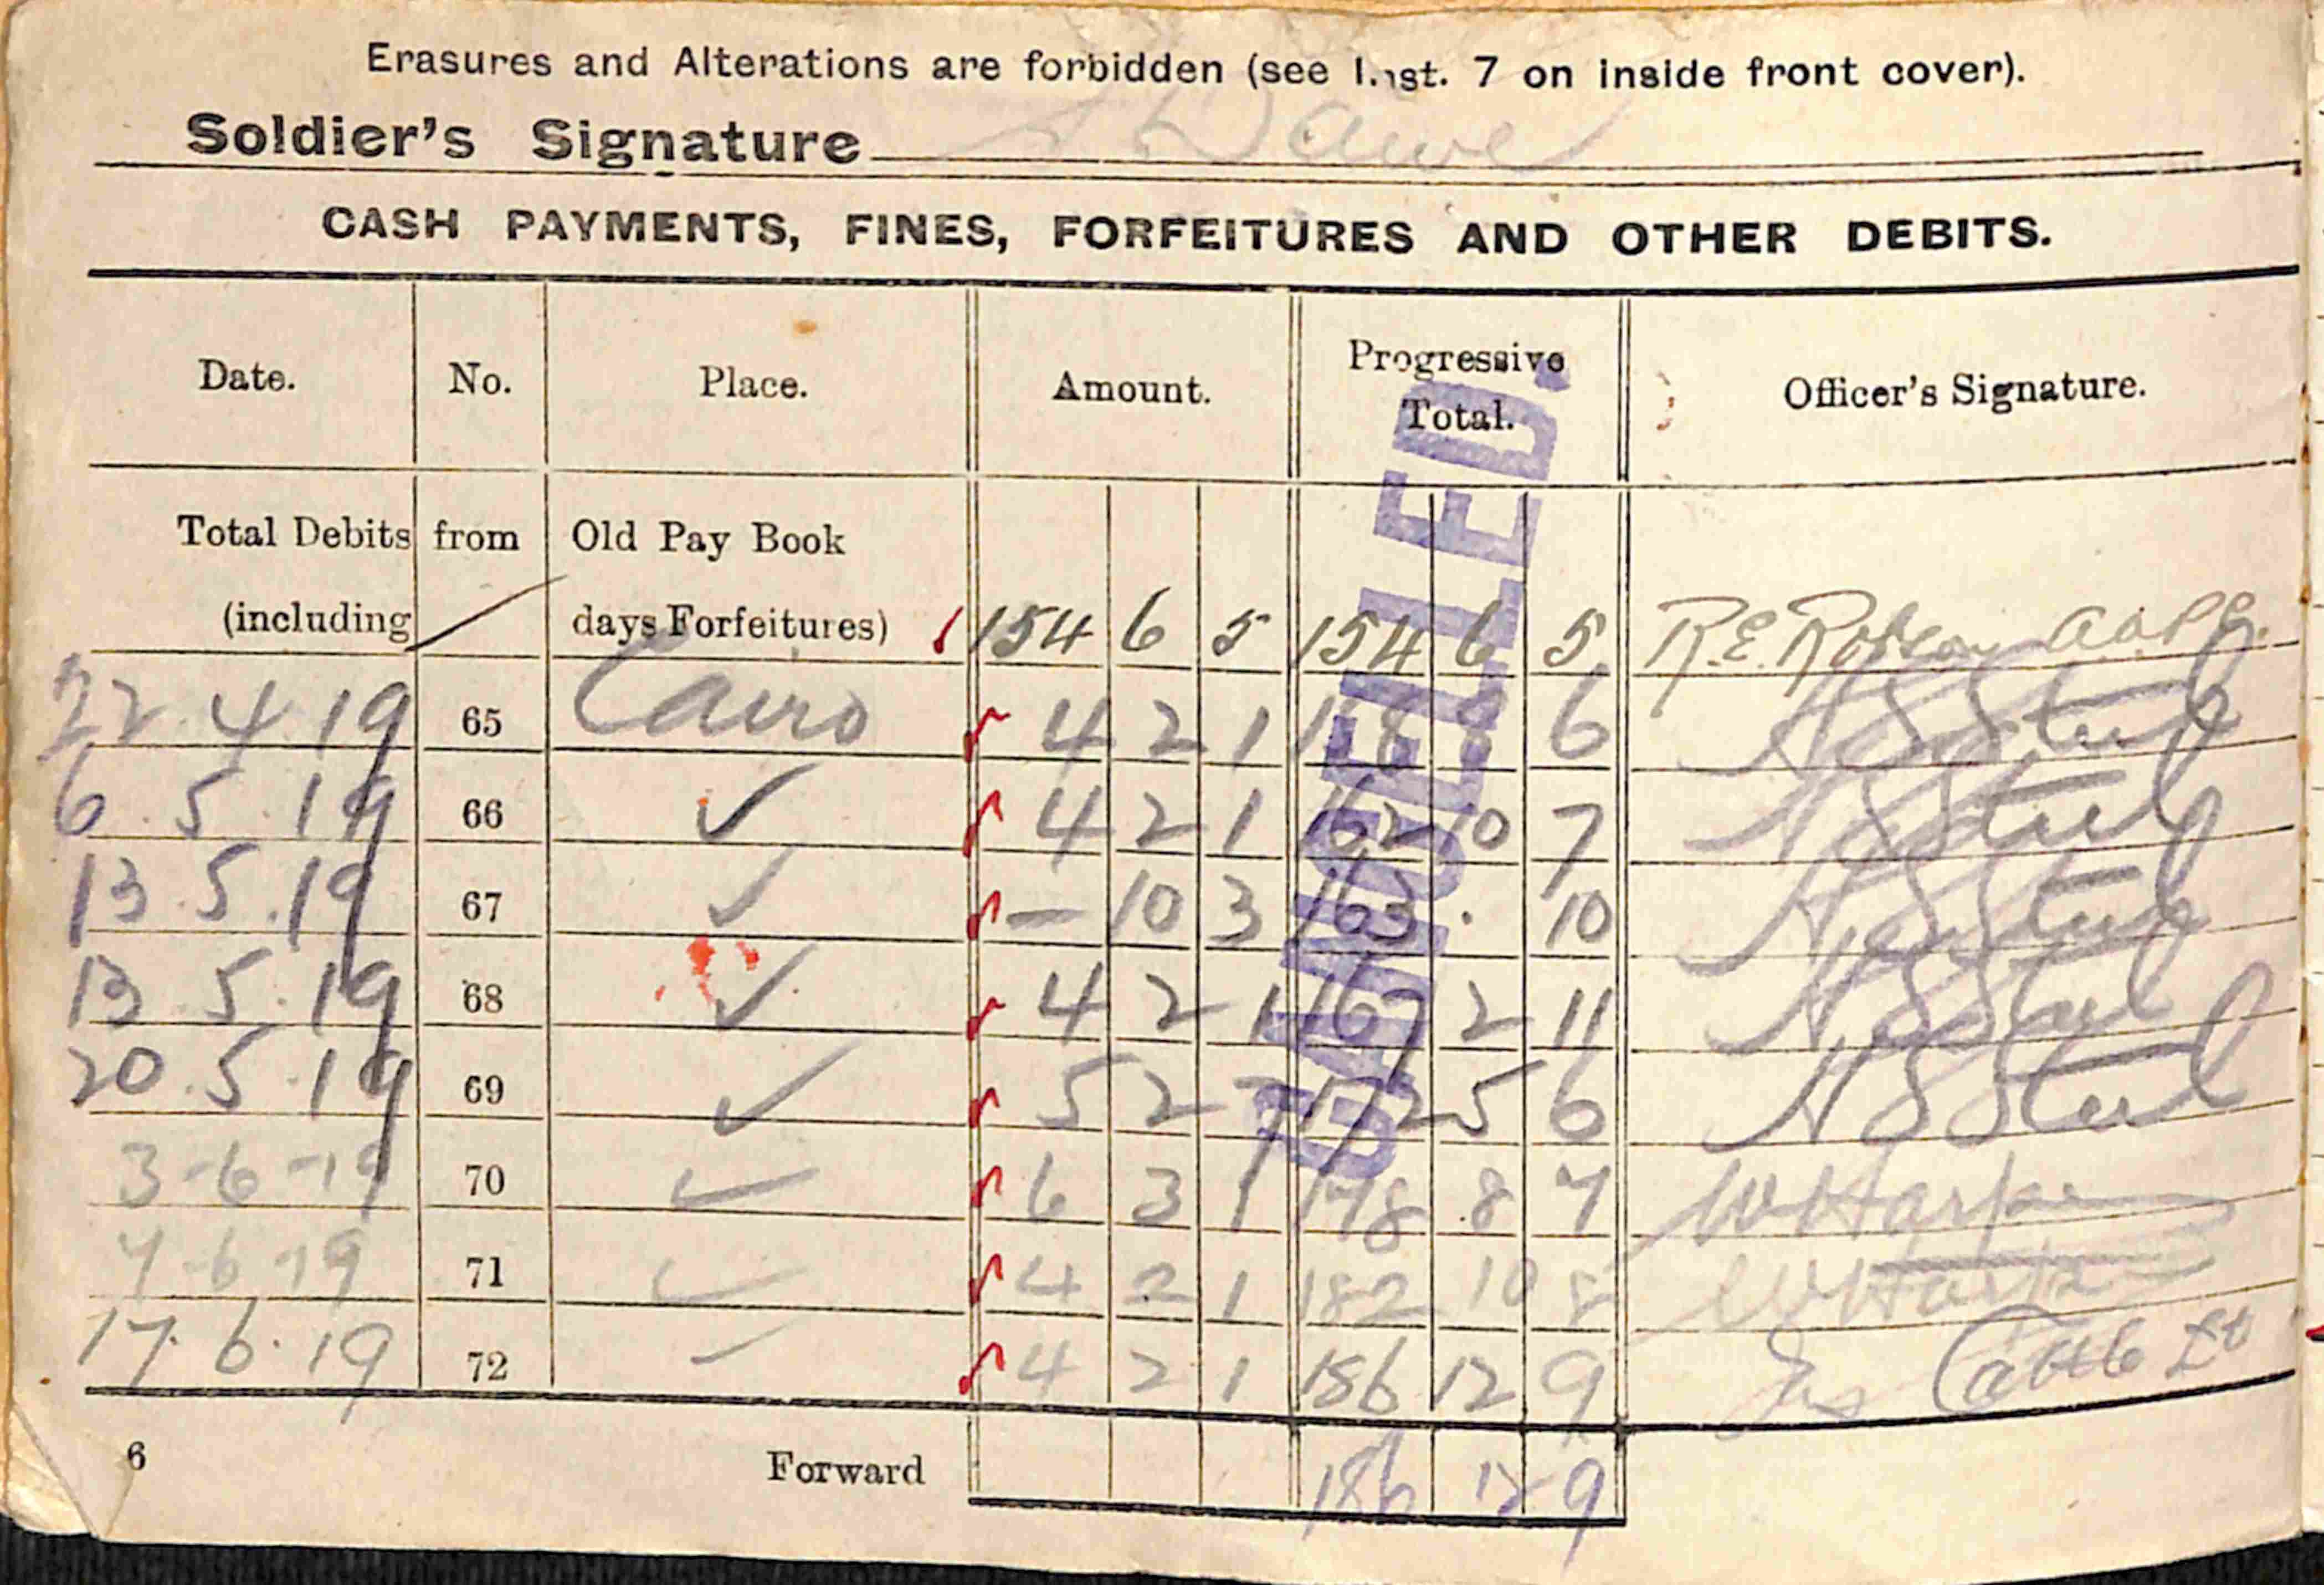 Erasures and Alterations are forbidden (see Inst. 7 on inside front cover).
Soldier's Signature Dawe
CASH PAYMENTS, FINES, FORFEITURES AND OTHER DEBITS.
Date. No. Place. Amount. Progressive Total. Officer's Signature.
Total Debits from Old Pay Book
(including days Forfeitures) 154 6 5 154 6 5 R.E. Robson
22.4.19 65 Cairo 4 2 1 158 8 6
6.5.19 66 ✓ 4 2 1 162 10 7
13.5.19 67 ✓ — 10 3 163 . 10
13 5.19 68 ✓ 4 2 1 167 2 11
20.5.19 69 ✓ 5 2 7 172 5 6
3-6-19 70 ✓ 6 3 1 178 8 7 W Harper
7-6-19 71 ✓ 4 2 1 182 10 8 W Harper
17.6.19 72 ✓ 4 2 1 186 12 9 Lt
6 Forward 186 12 9
CANCELLED.